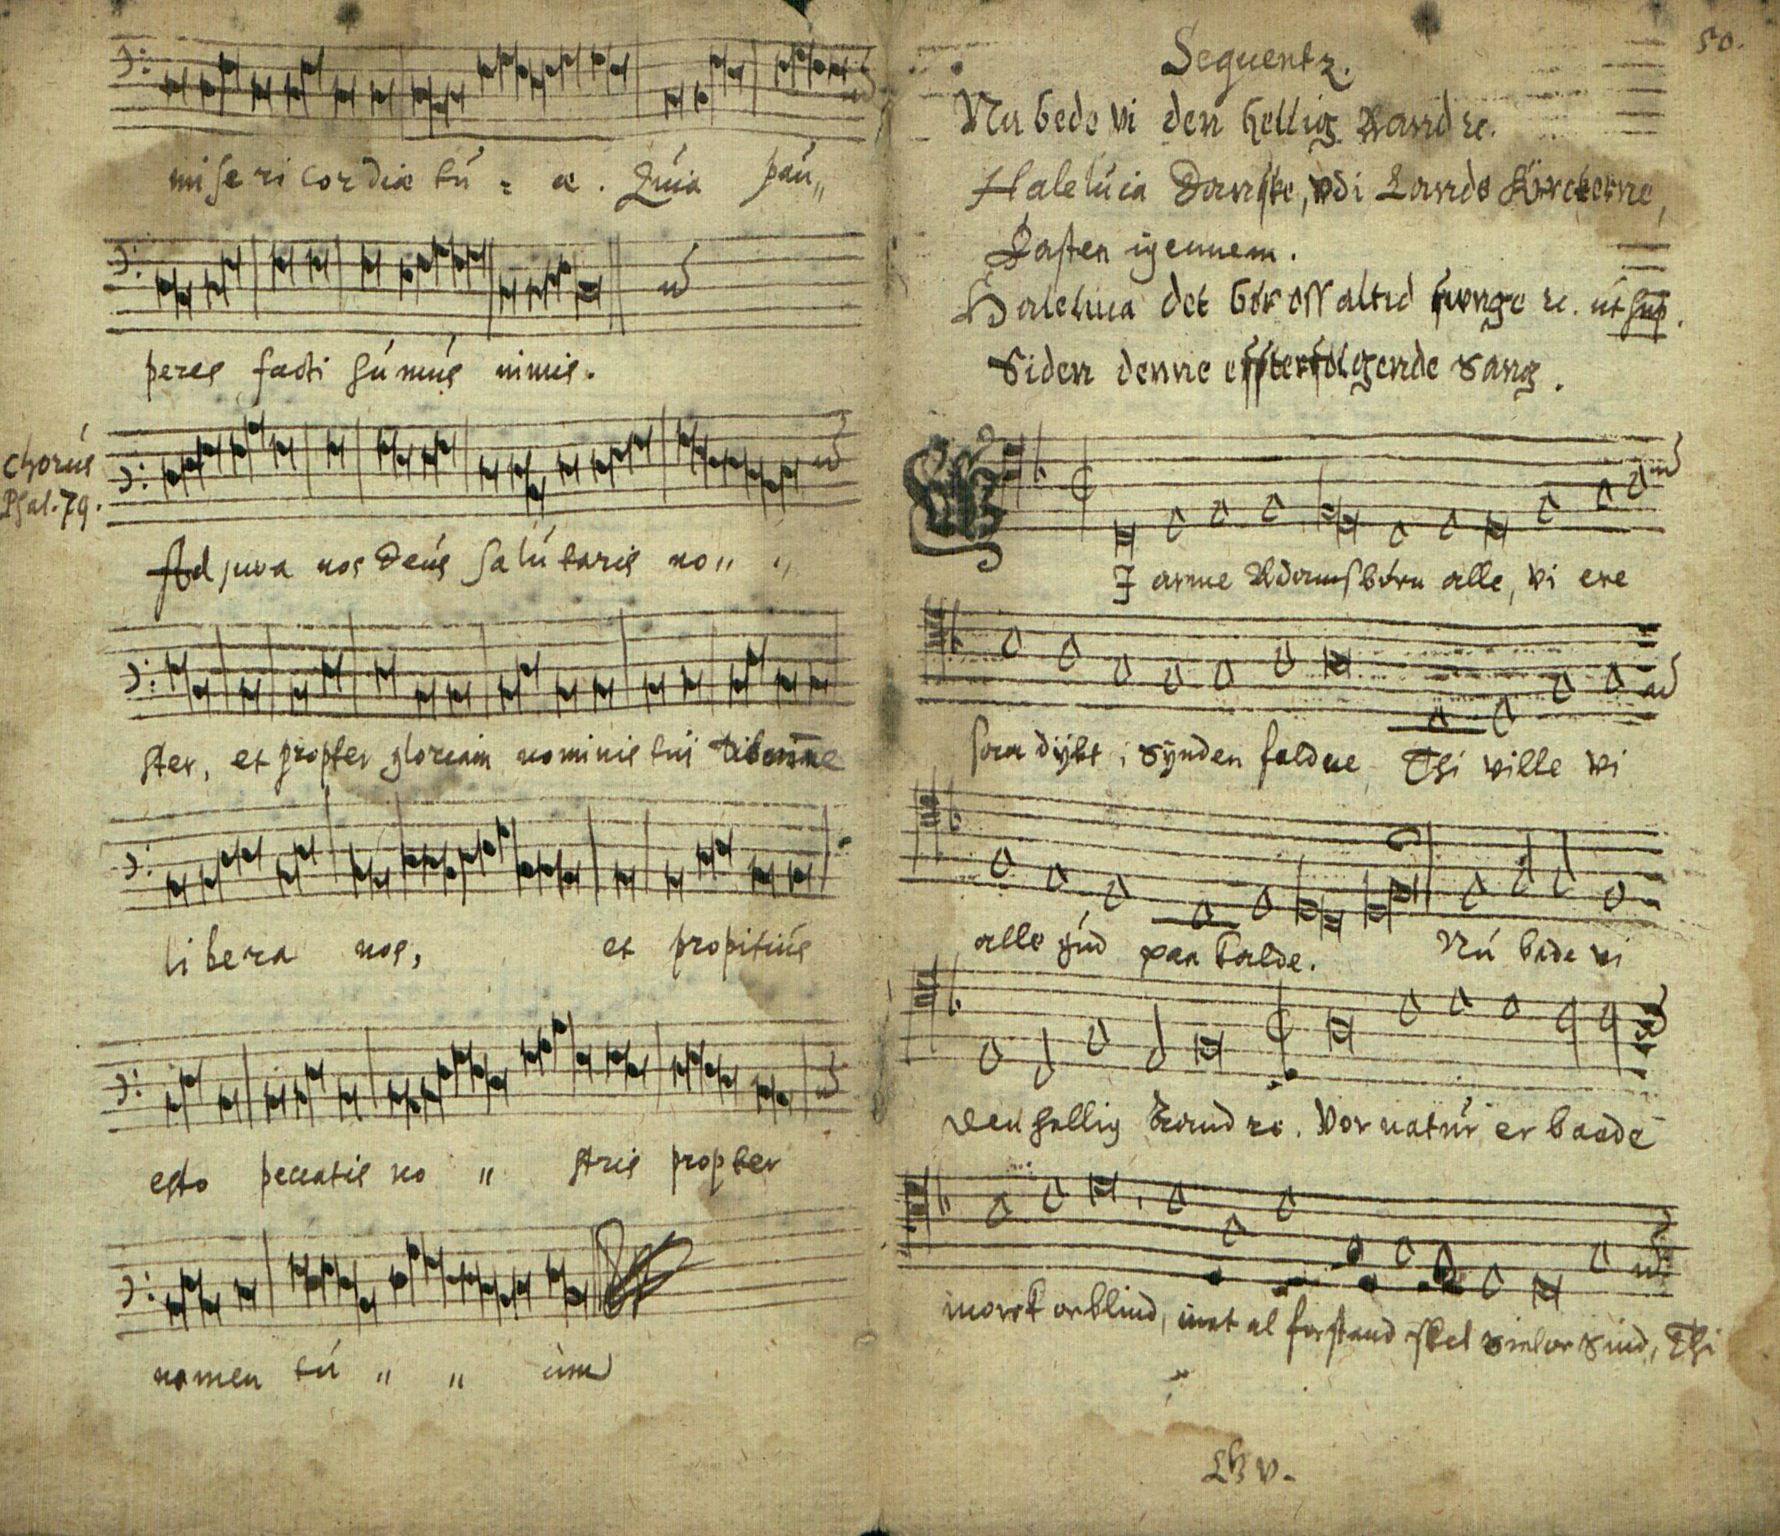 misericordiæ tú = æ. Quia páu„
peres facti súmús nimis.
Chorús
Psal. 79.
Adjuva nos Deús salútaris no„ „
ster, et propter gloriam nominis túi
libera nos, et propitiús
esto peccatis no „ stris propter
nomen tú „ „ úm
50.
Sequentz.
Nu bede vi den hellig Aand ꝛc.
Haleluia Danske, vdi Lands Kirckerne,
Fasten igennem.
Haleluia det bør oss altid siunge ꝛc. út sup.
Siden denne effterfølgende Sang.
VI arme Adams børn alle, vi ere
saa dÿbt i Sÿnden faldne Thi ville vi
alle Gúd paa kalde. Nú bede vi
den hellig Aand ꝛc. Vor natúr er baade
morck oc blind, mat al forstand skel sind, Thi